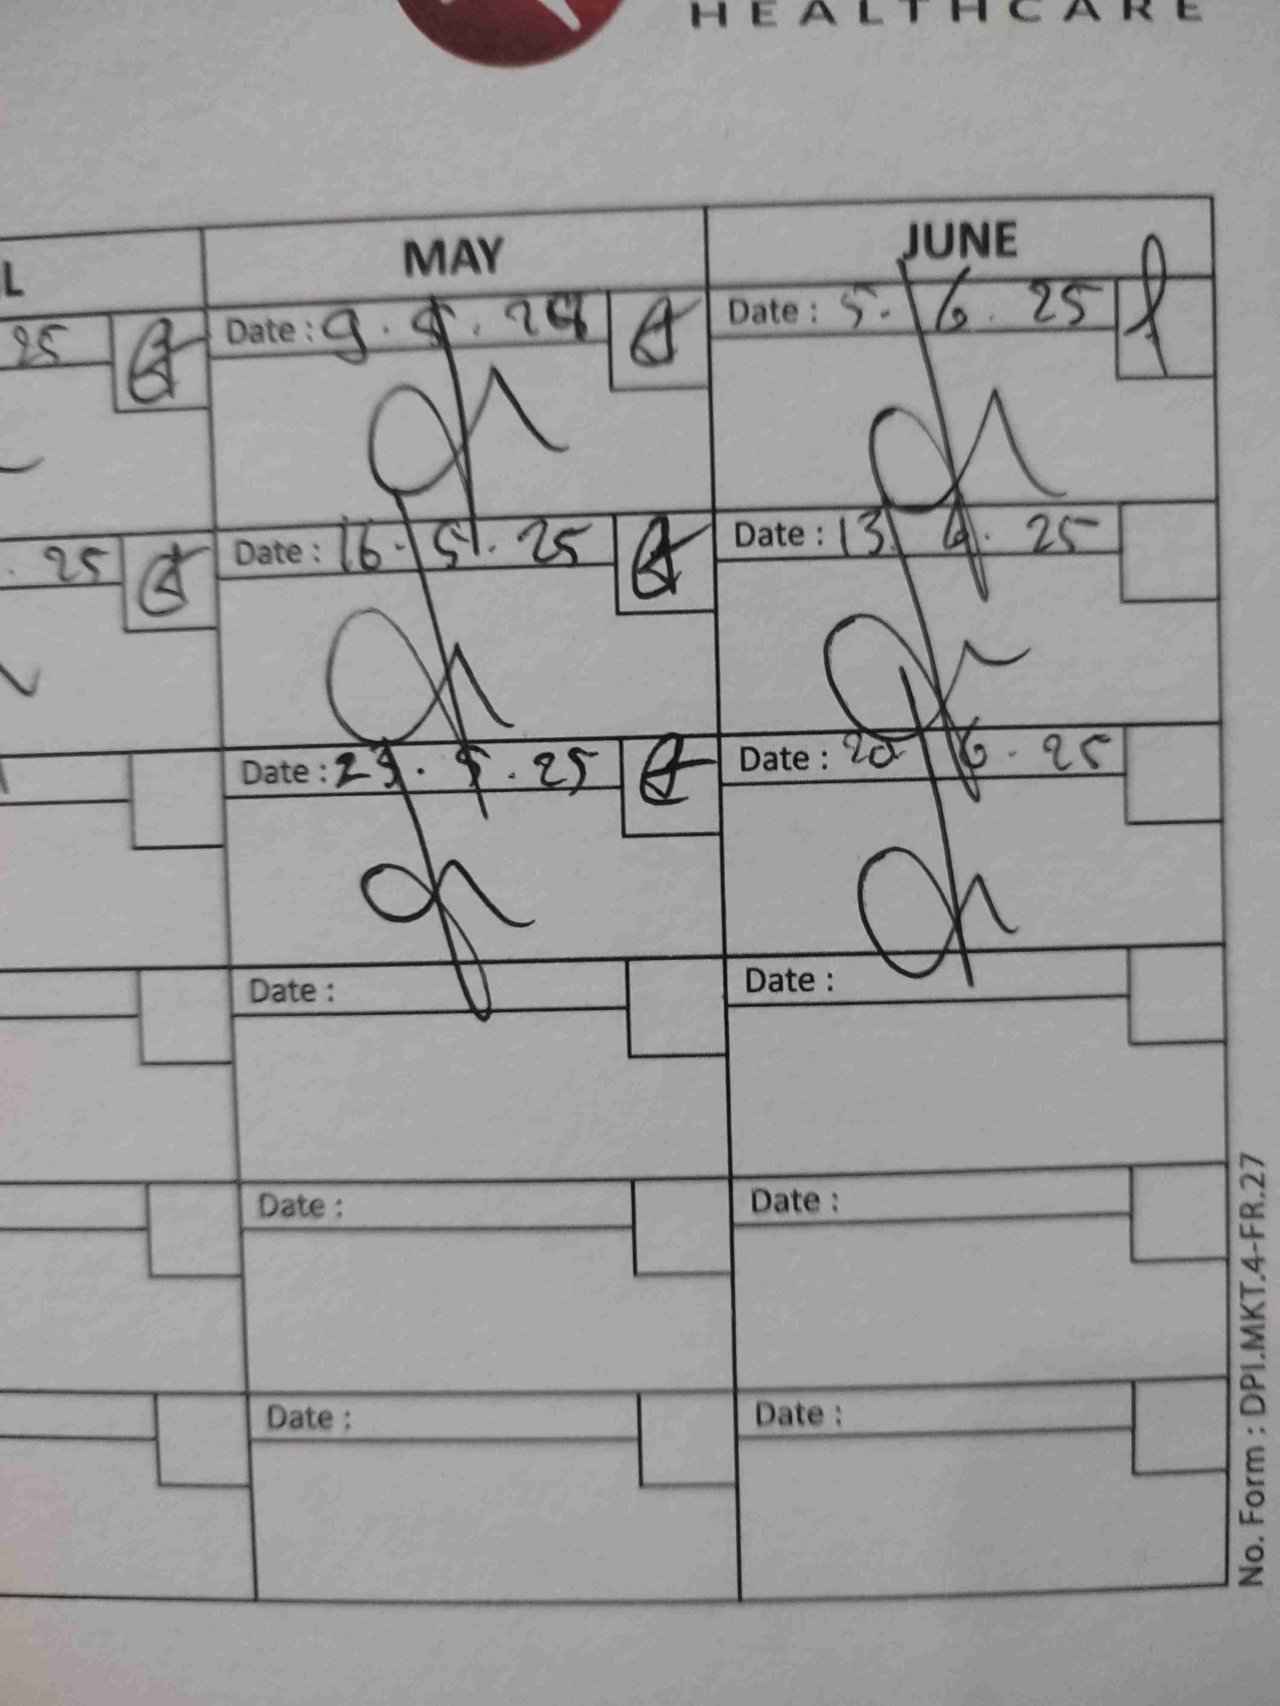 HEALTHCARE
L MAY JUNE
25 Date : 9. 5. Date : 5. 6. 25
. 25 Date : 16. 5. 25 Date : 13. 6. 25
Date : 23. 5. 25 Date : 20 6. 25
Date : Date :
Date : Date :
Date : Date :
No. Form : DPI.MKT.4-FR.27